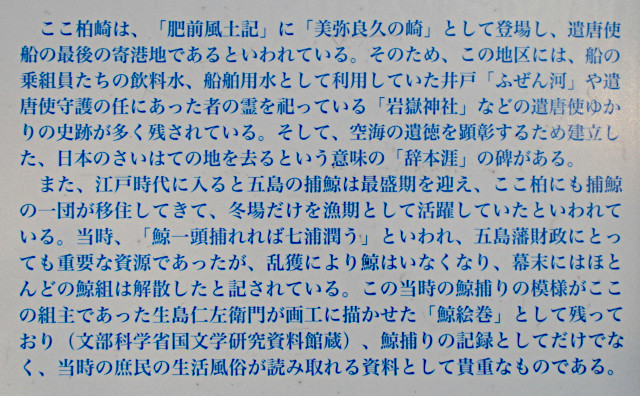 ここ柏崎は、「肥前風土記」に「美弥良久の崎」として登場し、遣唐使
船の最後の寄港地であるといわれている。そのため、この地区には、船の
乗組員たちの飲料水、船舶用水として利用していた井戸「ふぜん河」や遣
唐使守護の任にあった者の霊を祀っている「岩嶽神社」などの遣唐使ゆか
りの史跡が多く残されている。そして、空海の遺徳を顕彰するため建立し
た、日本のさいはての地を去るという意味の「辞本涯」の碑がある。
また、江戸時代に入ると五島の捕鯨は最盛期を迎え、ここ柏にも捕鯨
の一団が移住してきて、冬場だけを漁期として活躍していたといわれて
いる。当時、「鯨一頭捕れれば七浦潤う」といわれ、五島藩財政にとっ
ても重要な資源であったが、乱獲により鯨はいなくなり、幕末にはほと
んどの鯨組は解散したと記されている。この当時の鯨捕りの模様がここ
の組主であった生島仁左衛門が画工に描かせた「鯨絵巻」として残って
おり（文部科学省国文学研究資料館蔵）、鯨捕りの記録としてだけでな
く、当時の庶民の生活風俗が読み取れる資料として貴重なものである。